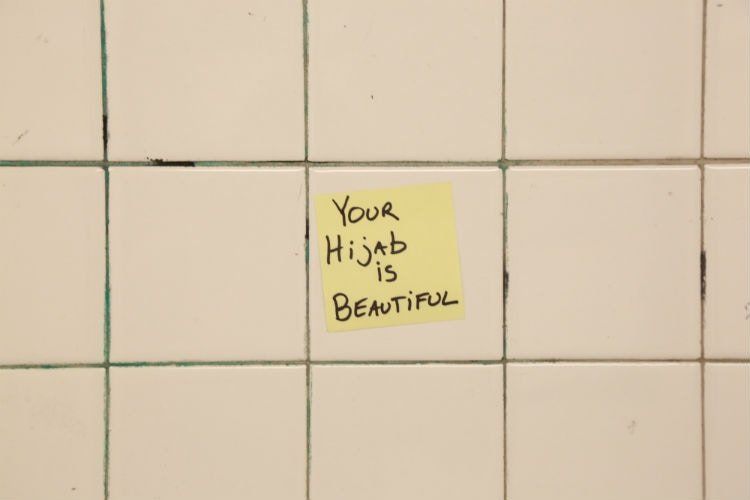 Your
Hijab
is
Beautiful